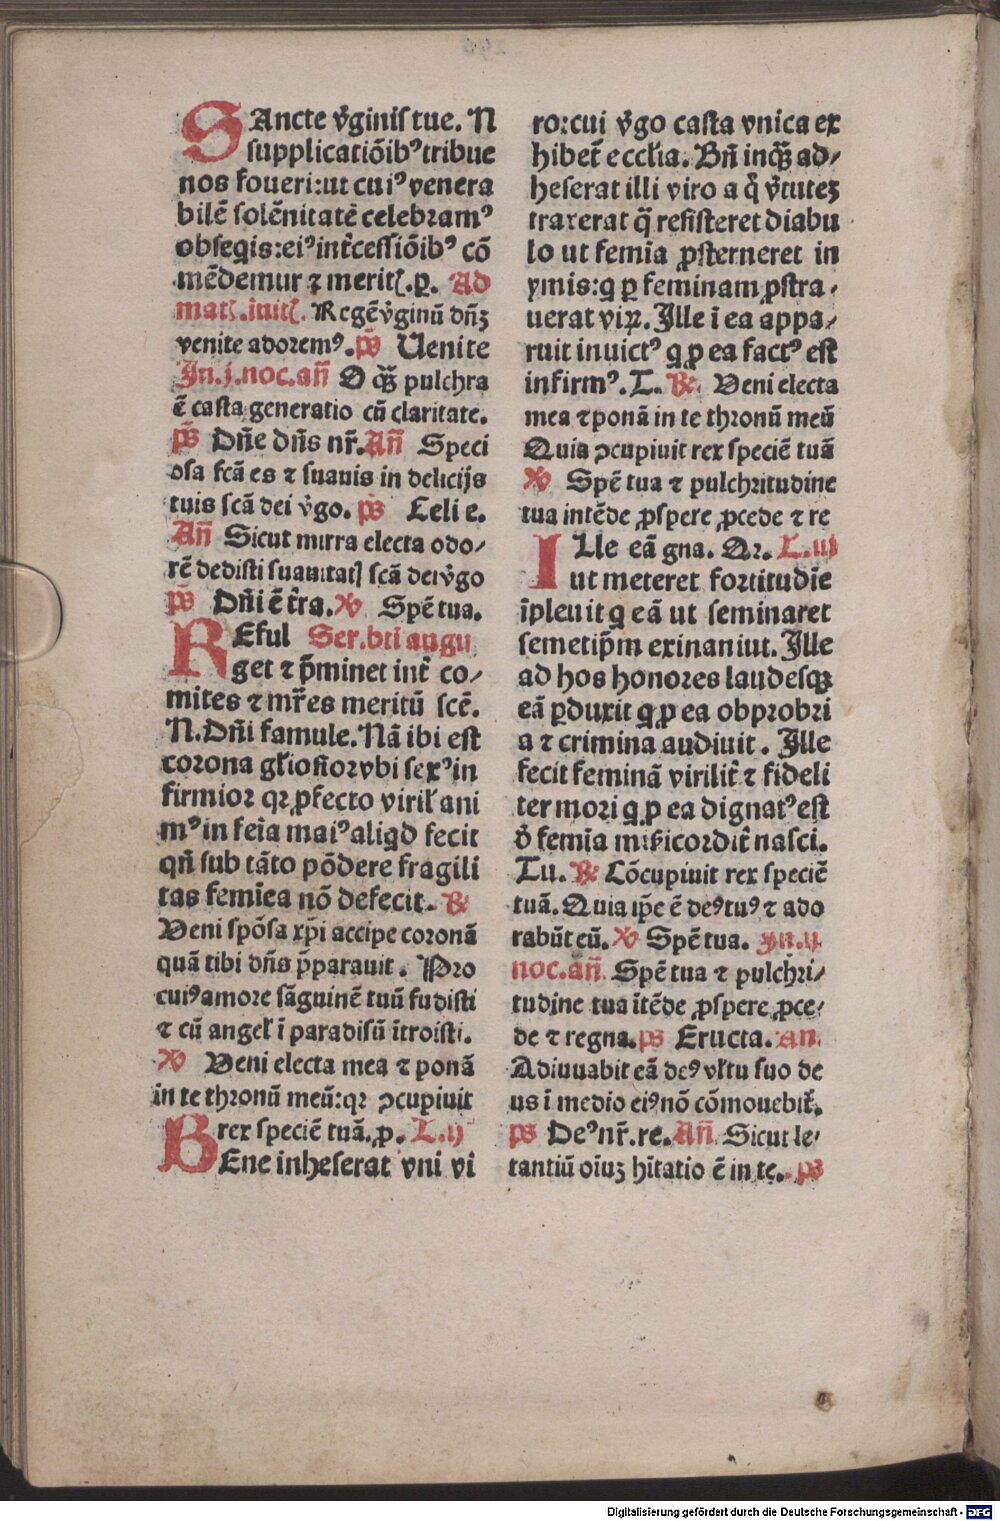 SAncte v̓ginis tue. N
supplicatiōibꝰ tribue
nos foueri:ut cuiꝰ venera
bilē solēnitatē celebramꝰ
obsegis:eiꝰ int̄cessiōibꝰ cō
mēdemur ⁊ merit. p. Ad
mat.īuit. Regē v̓ginū dn̄ꝫ
venite adoremꝰ. p̄s Uenite
In.j.noc.an̄ O qꝫ̄ pulchra
ē casta generatio cū claritate.
p̄s Dn̄e dn̄s nr̄. An̄ Speci
osa fcā es ⁊ suauis in delicijs
tuis scā dei v̓go. p̄s Celi e.
An̄ Sicut mirra electa odo⸗
rē dedisti suauitatꝭ scā dei v̓go
p̄s Dn̄i ē t̄ra. ℣ Spē tua.
REful Ser.bti augu
get ⁊ p̄minet int̄ co⸗
mites ⁊ mr̄es meritū scē.
N. Dn̄i famule. Nā ibi est
corona gl̄iosior vbi sexꝰ in
firmior qꝛ ꝓfecto viril̄ ani
mꝰ in feīa maiꝰ aligd fecit
qn̄ sub tāto pōdere fragili
tas femīea nō defecit. ℟
Veni spōsa xp̄i accipe coronā
quā tibi dn̄s p̄parauit. Pro
cuiꝰ amore sāguinē tuū fudisti
⁊ cū angel̄ ī paradisū ītroisti.
℣ Veni electa mea ⁊ ponā
in te thronū meū:qꝛ ↄcupiuit
rex speciē tuā. ꝓ. L.ij
BEne inheserat vni vi
ro:cui v̓go casta vnica ex
hibet̄ eccl̄ia. Bn̄ inqꝫ̄ ad⸗
heserat illi viro a q̄ v̓tuteꝫ
traxerat q̄ resisteret diabu
lo ut femīa ꝓsterneret in
ymis:q ꝑ feminam ꝓstra⸗
uerat viꝝ. Ille ī ea appa⸗
ruit inuictꝰ q ꝓ ea factꝰ est
infirmꝰ. T. ℟. Veni electa
mea ⁊ ponā in te thronū meū
Quia ↄcupiuit rex speciē tuā
℣ Spē tua ⁊ pulchritudine
tua intēde ꝓspere ꝓcede ⁊ re
ILle eā gna. Qꝛ. L.iij
ut meteret fortitudīe
īpleuit q eā ut seminaret
semetip̄m exinaniut. Ille
ad hos honores laudesqꝫ
eā ꝑduxit q ꝓ ea obprobri
a ⁊ crimina audiuit. Ille
fecit feminā virilit̄ ⁊ fideli
ter mori q ꝓ ea dignatꝰ est
d̄ femīa mīsicordit̄ nasci.
Tu. ℟ Cōcupiuit rex speciē
tuā. Quia ip̄e ē deꝰ tuꝰ ⁊ ado
rabūt eū. ℣ Spē tua. In.ij.
noc.an̄ Spē tua ⁊ pulchri⸗
tudine tua ītēde ꝓspere ꝓce⸗
de ⁊ regna. ps Eructa. An.
Adiuuabit eā deꝰ vl̄tu suo de
us ī medio eiꝰ nō cōmouebit̄.
ps Deꝰ nr̄. re. An̄ Sicut le⸗
tantiū oīuꝫ hītatio ē in te. ps
Digitalisierung gefördert durch die Deutsche Forschungsgemeinschaft - DFG